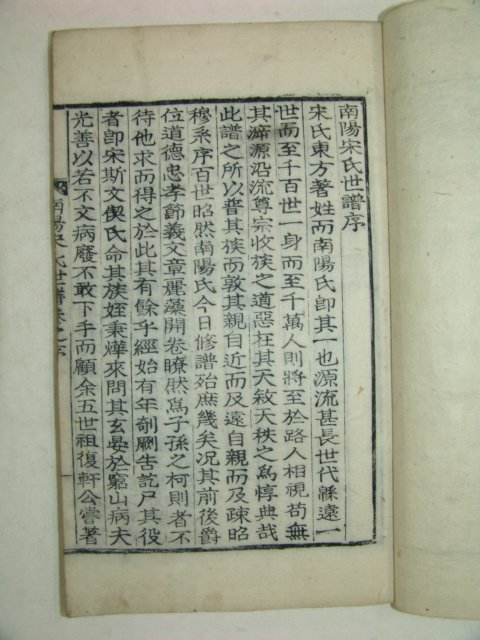 南陽宋氏世譜序
宋氏東方著姓而南陽氏卽其一也源流甚長世代緜遠一
世而至千百世一身而至千萬人則將至於路人相視苟無
其溯源沿流尊宗收族之道惡在其天敍天秩之爲惇典哉
此譜之所以普其族而敦其親自近而及遠自親而及疎昭
穆系序百世昭然南陽氏今日修譜殆庶幾矣況其前後爵
位道德忠孝節義文章麗藻開卷瞭然爲子孫之柯則者不
待他求而得之於此其有餘乎經始有年剞劂告訖尸其役
者卽宋斯文㮮氏命其族姪秉燁來問其玄晏於窮山病夫
光善以若不文病廢不敢下手而顧余五世祖復軒公嘗著
南陽宋氏世譜卷之序